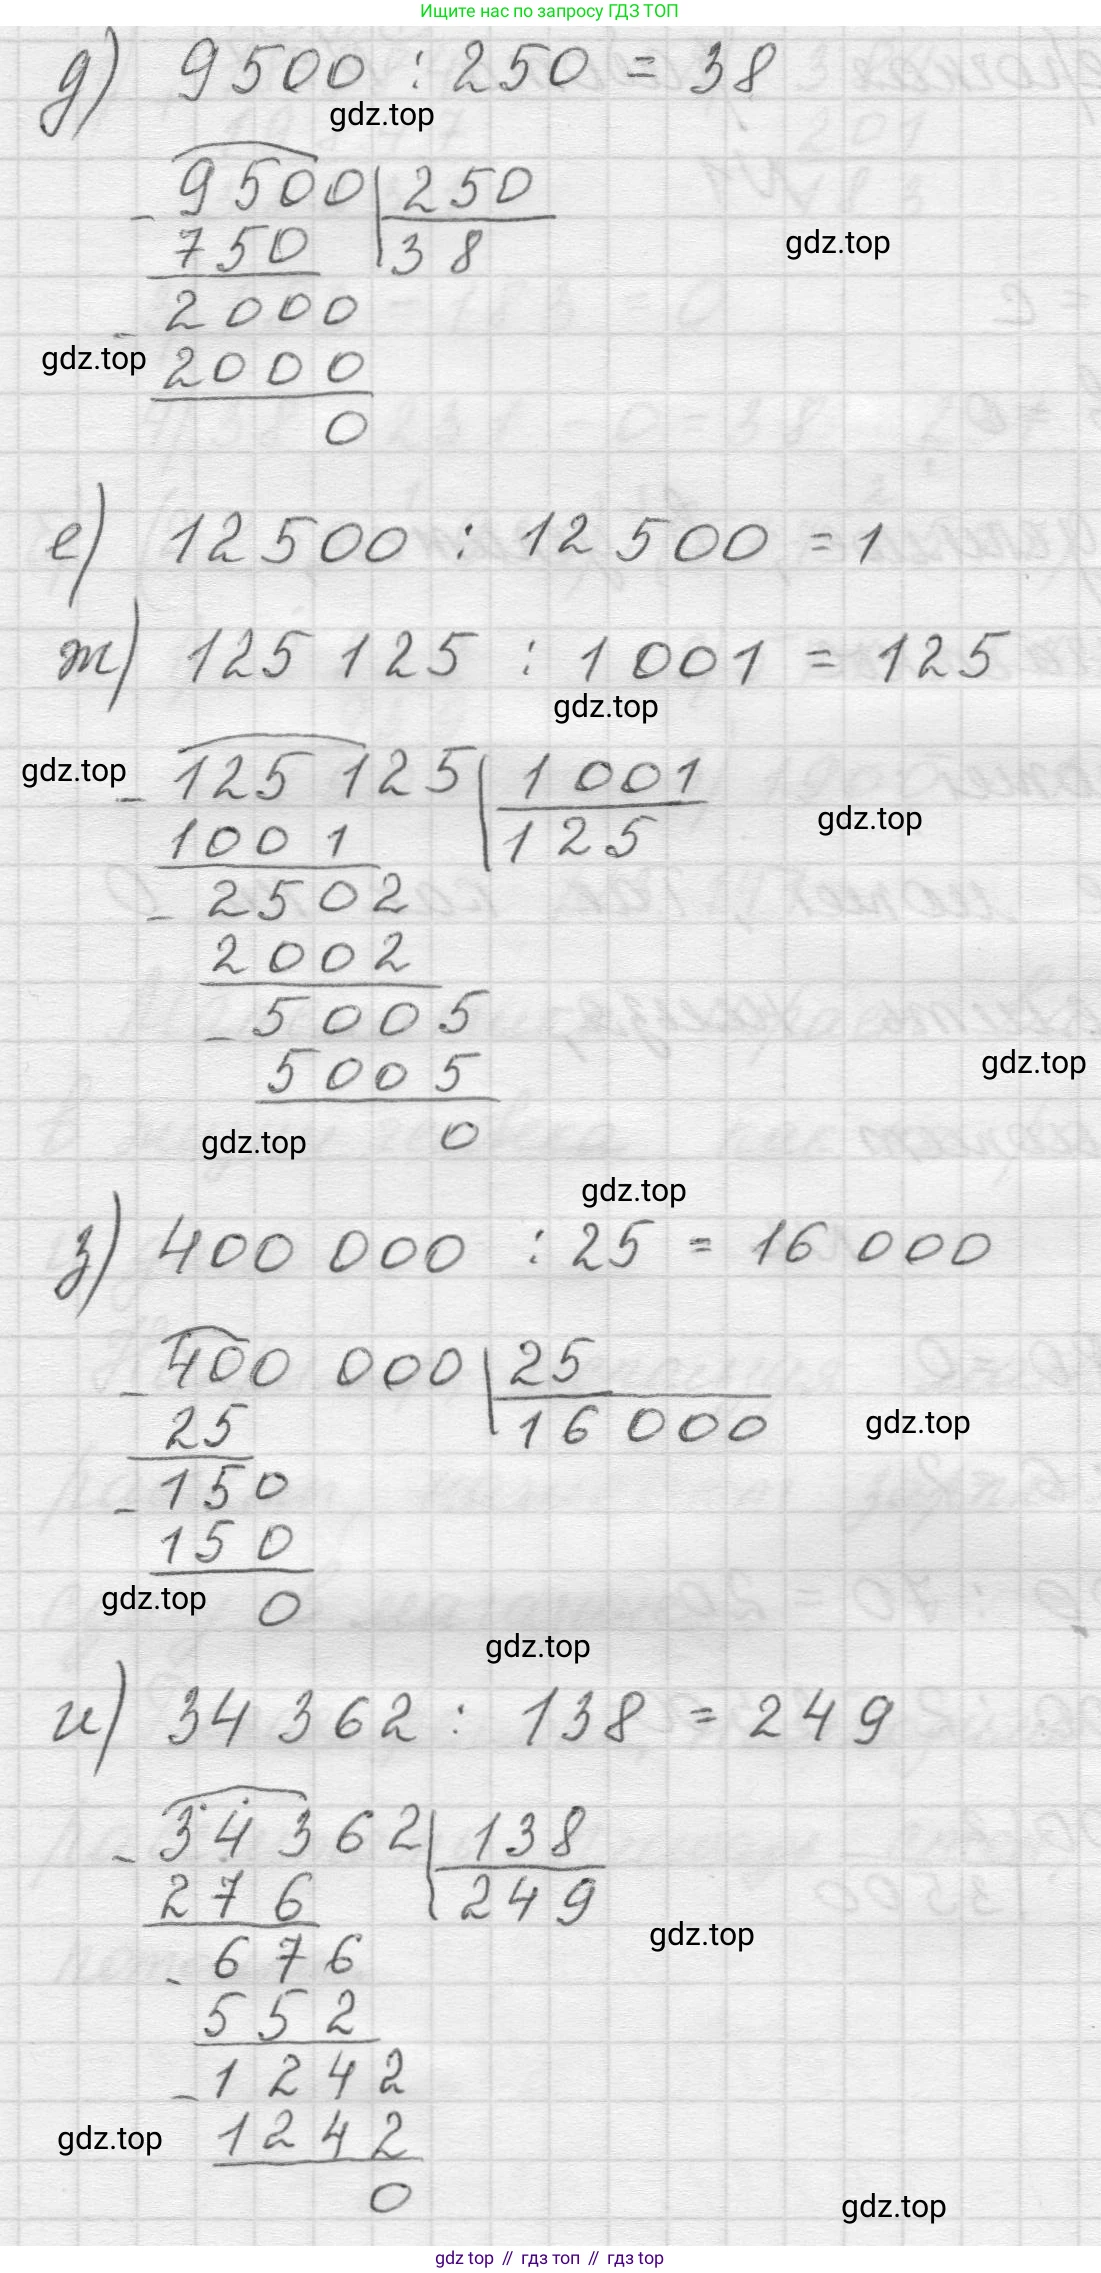 Ищите нас по запросу ГДЗ ТОП
д) 9500 : 250 = 38
gdz.top
9500 250
gdz.top
750 38
2000
gdz.top
2000
0
е) 12500 : 12500 = 1
ж) 125 125 : 1001 = 125
gdz.top
gdz.top
125 125 1001
gdz.top
1001 125
2502
2002
5005
gdz.top
5005
gdz.top
0
gdz.top
з) 400 000 : 25 = 16 000
400 000 25
25 16 000
gdz.top
150
150
gdz.top
0
gdz.top
и) 34 362 : 138 = 249
34 362 138
276 249
gdz.top
676
552
1242
gdz.top
1242
0
gdz.top
gdz top // гдз топ // gdz top